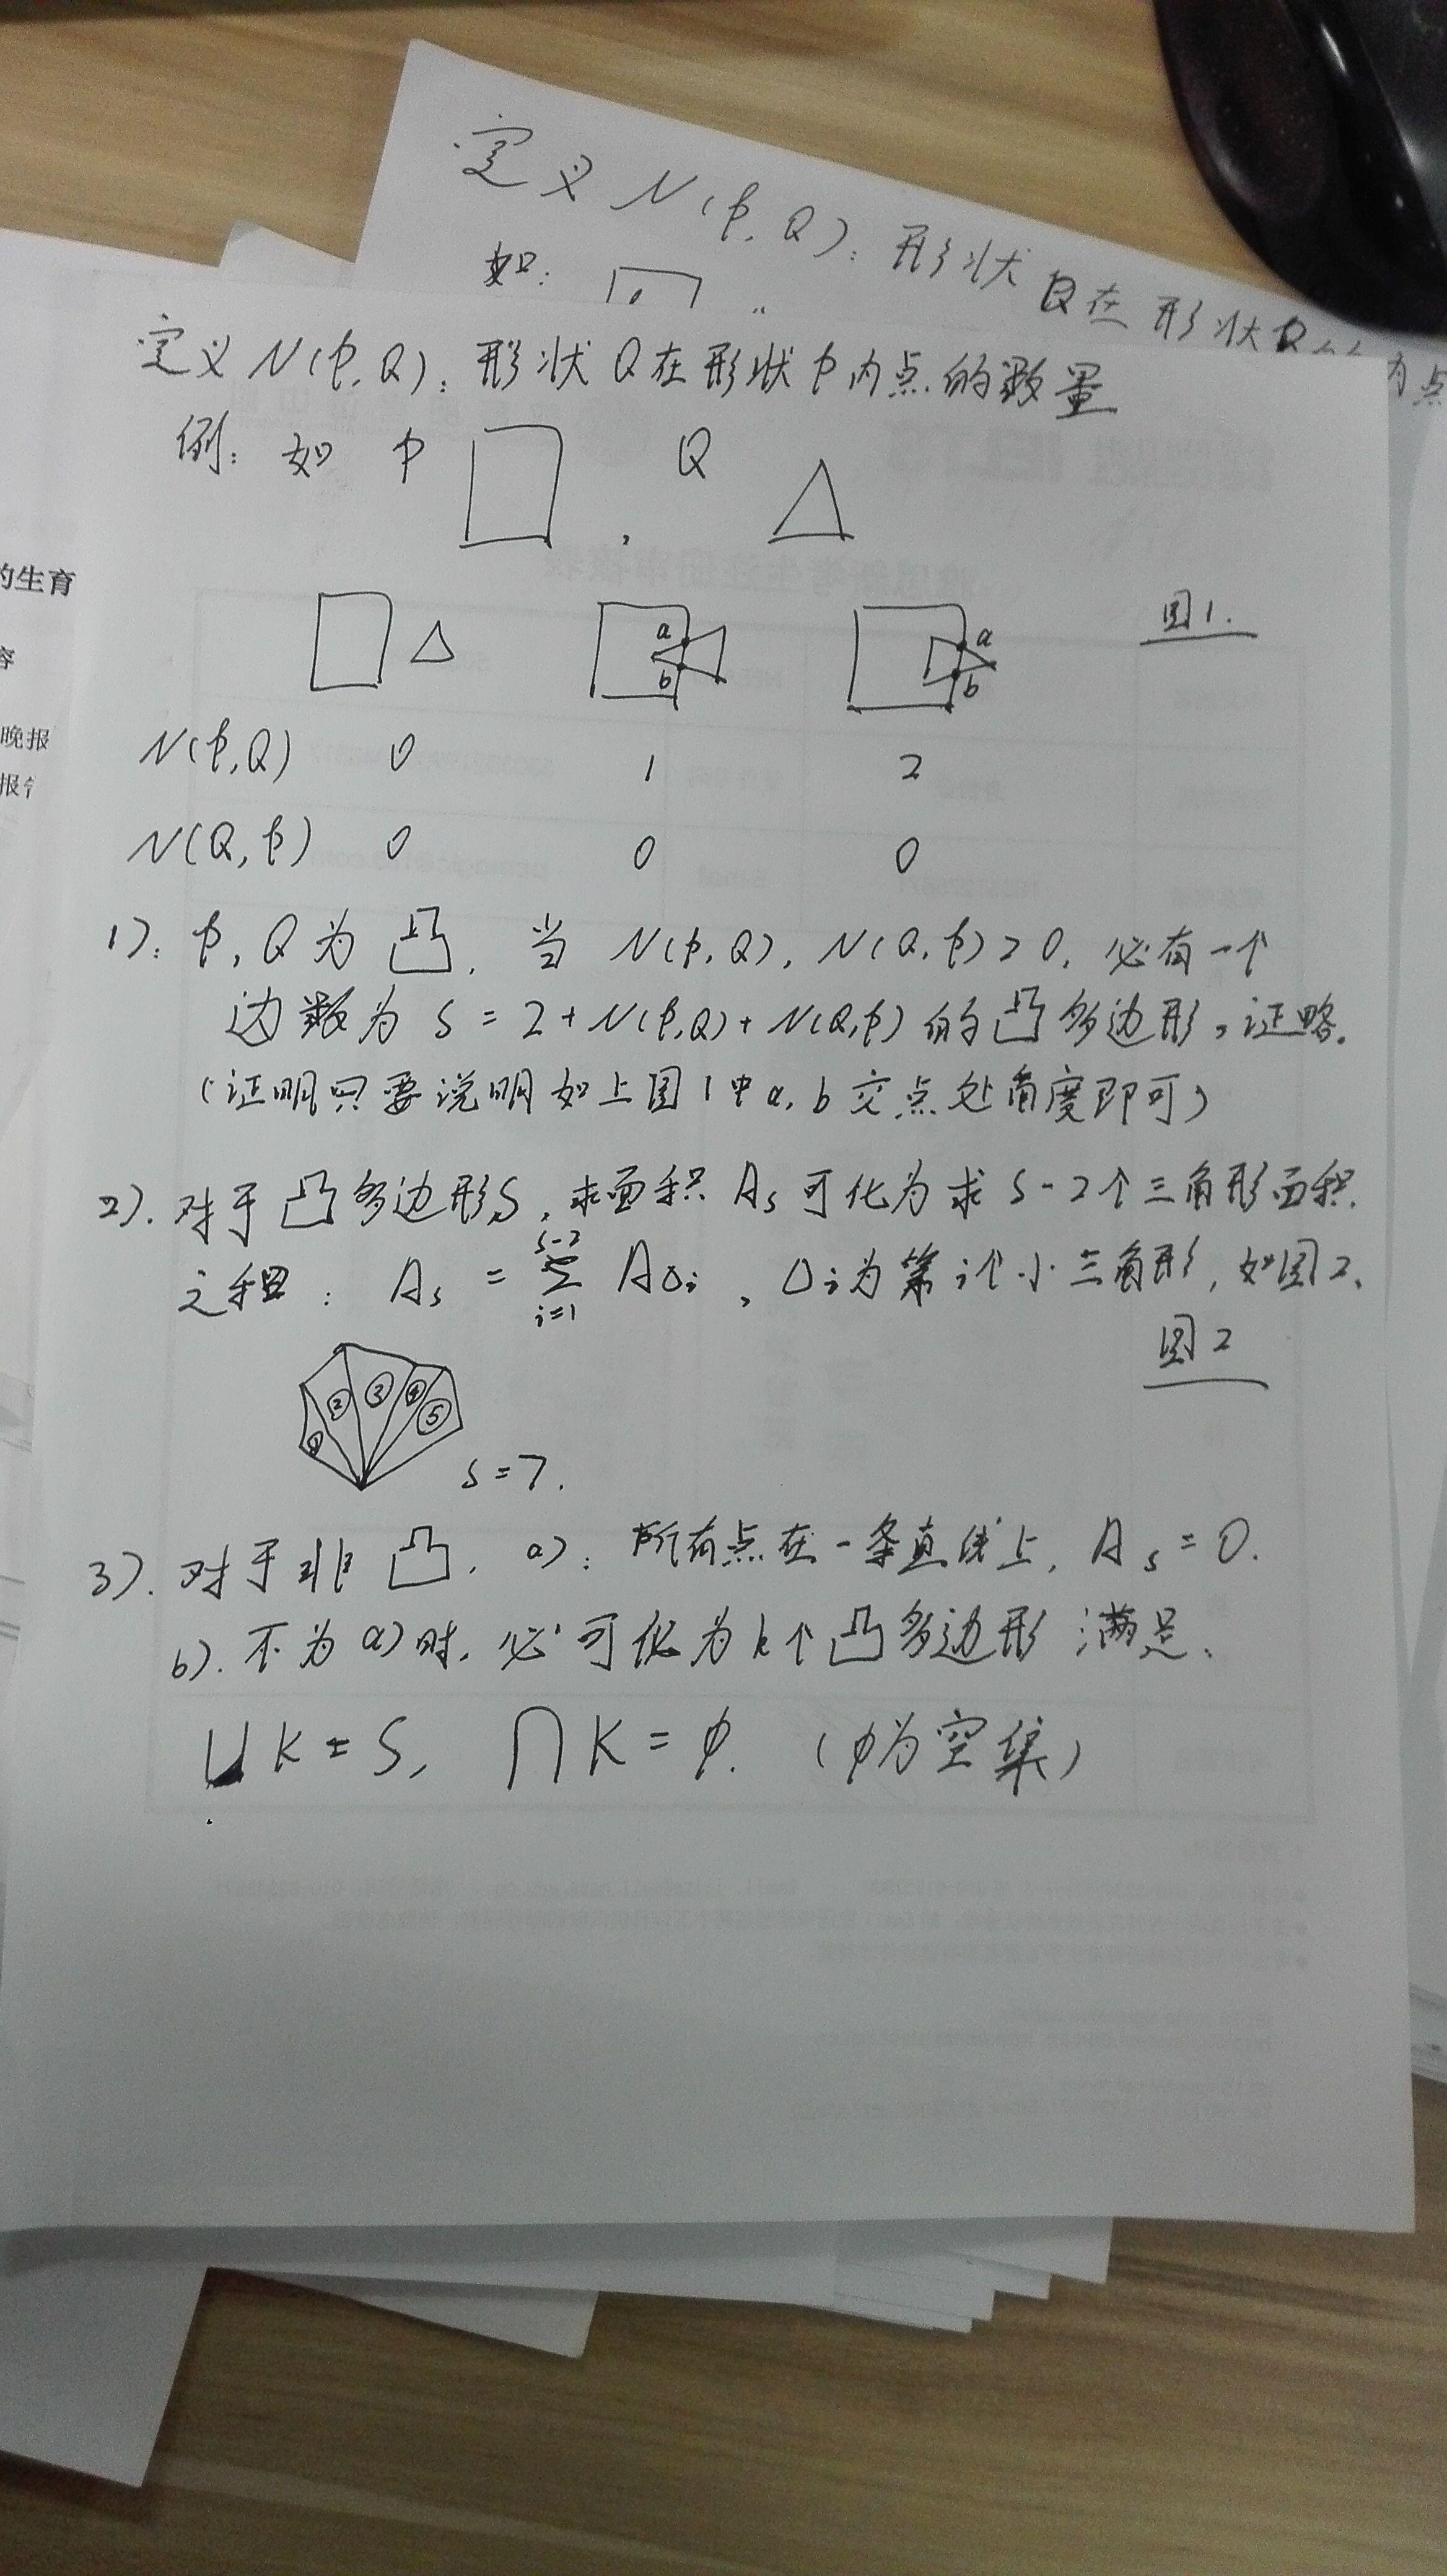 定义 N(P,Q): 形状 Q在 形状
如:
定义 N(P,Q): 形状 Q 在形状 P 内点的数量
例: 如 P , Q
a b a b 图1.
N(P,Q) 0 1 2
N(Q,P) 0 0 0
1): P, Q 为 凸. 当 N(P,Q), N(Q,P)>0, 必有一个
边数为 S = 2 + N(P,Q) + N(Q,P) 的凸多边形, 证略.
(证明只要说明如上图1中 a, b 交点处角度即可)
2). 对于凸多边形S, 求面积 As 可化为求 S-2个三角形面积
之和: As = Σ_{i=1}^{S-2} A△i , △i为第i个小三角形, 如图2.
图2
① ② ③ ④ ⑤
S=7.
3). 对于非凸. a): 所有点在一条直线上, As = 0.
b). 不为a)时, 必可化为k个凸多边形 满足.
⋃K = S, ⋂K = φ. (φ为空集)
的生育
容
晚报